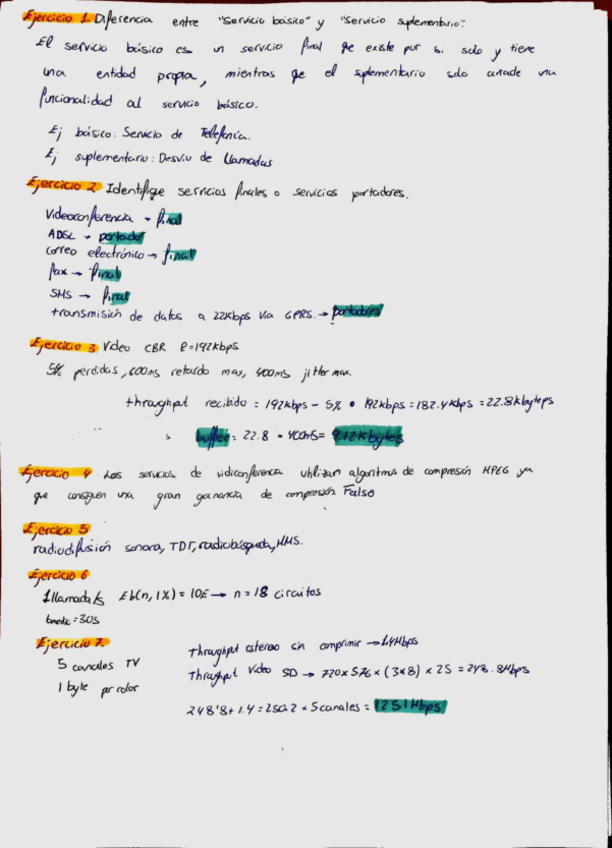 Ejercicio 1. Diferencia entre "Servicio básico" y "Servicio suplementario":
El servicio básico es un servicio final que existe por si solo y tiene
una entidad propia, mientras que el suplementario solo añade una
funcionalidad al servicio básico.
Ej básico: Servicio de Telefonía.
Ej suplementario: Desvio de Llamadas
Ejercicio 2 Identifique servicios finales o servicios portadores.
Videoconferencia → final
ADSL → portador
correo electrónico → final
fax → final
SMS → final
transmisión de datos a 22Kbps via GPRS. → portadores
Ejercicio 3 Video CBR R=192kbps
5% perdidas, 600ms retardo max, 400ms jitter max.
throughput recibido = 192kbps - 5% • 192kbps = 182.4kbps = 22.8kbyteps
buffer = 22.8 • 400ms = 9.12Kbytes
Ejercicio 4 Los servicios de vidiconferencia utilizan algoritmos de compresión MPEG ya
que consiguen una gran ganancia de compresión. Falso
Ejercicio 5
radiodifusión sonora, TDT, radiobúsqueda, MMS.
Ejercicio 6
1 llamada/s Eb(n, 1%) = 10E → n = 18 circuitos
tmedio = 30s
Ejercicio 7.
5 canales TV
1 byte por color
Throughput estereo sin comprimir → 1.4Mbps
Throughput Video SD → 720 x 576 x (3x8) x 25 = 248.8Mbps
248'8 + 1.4 = 250.2 x 5canales = 1251Mbps